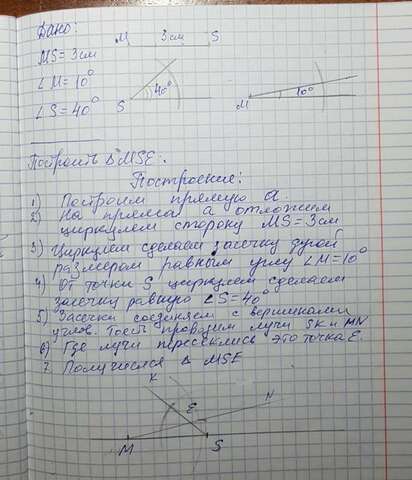 Дано: M 3см S
MS = 3см
∠M = 10°
∠S = 40° S 40° M 10°
Построить △MSE.
Построение:
1) Построим прямую a
2) На прямой a отложим
циркулем сторону MS = 3см
3) Циркулем сделаем засечку дугой
размером равным углу ∠M = 10°
4) От точки S циркулем сделаем
засечку равную ∠S = 40°
5) Засечки соединяем с вершинами
углов. Тоесть проводим лучи SK и MN
6) Где лучи пересеклись это точка E.
7. Получился △ MSE
K E N
M S